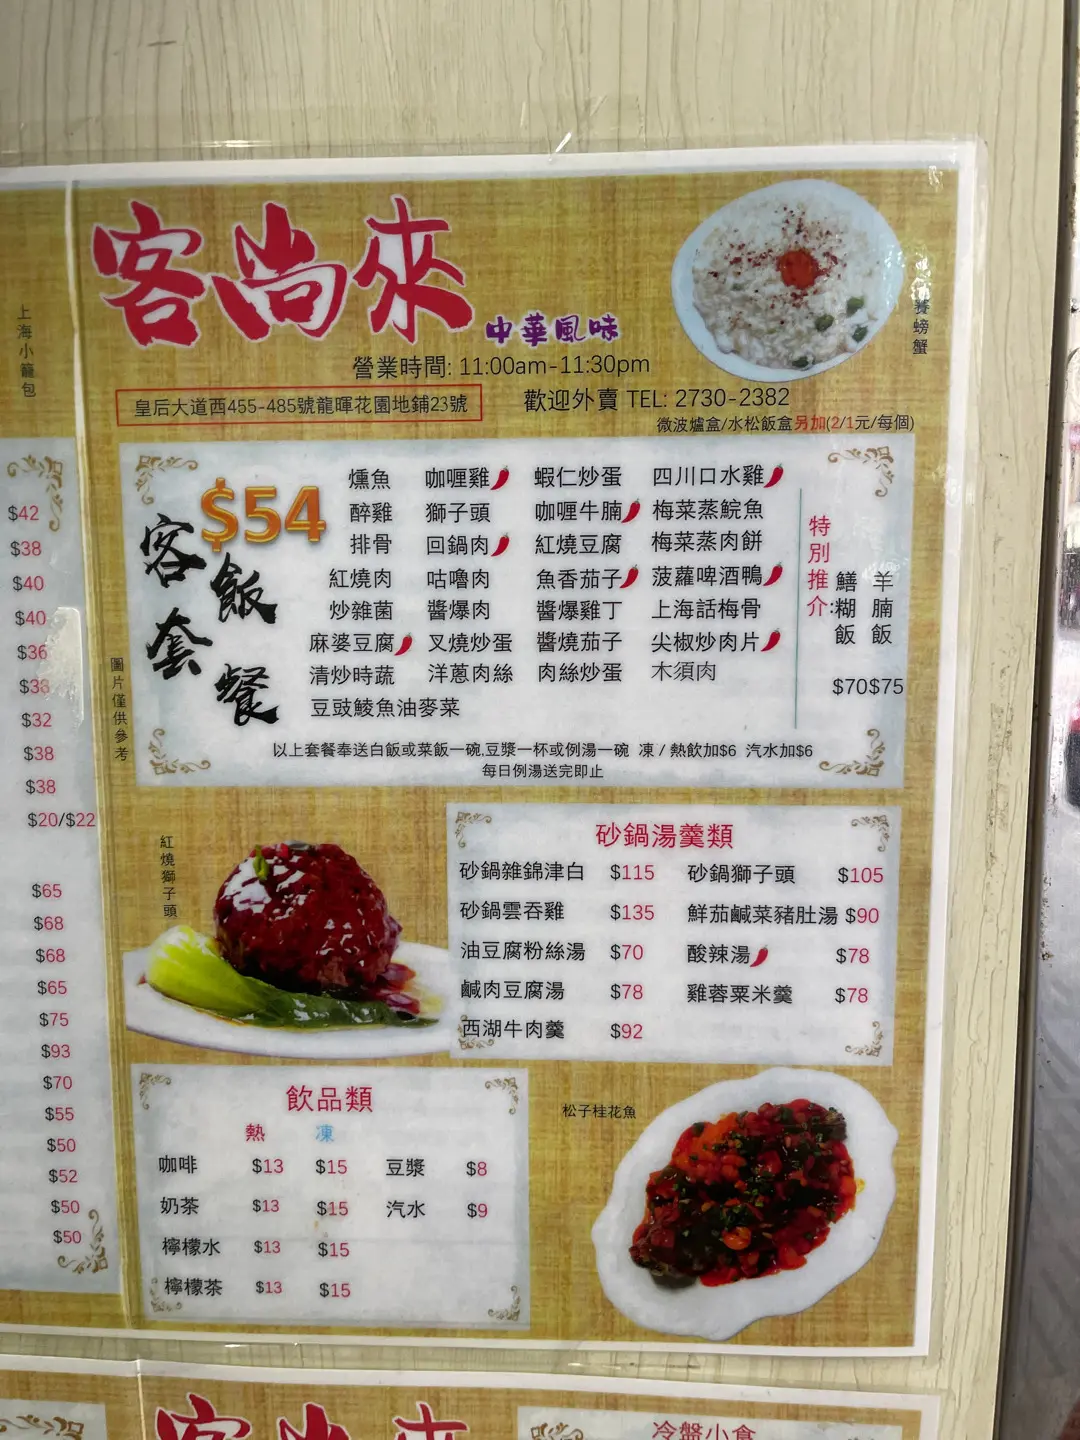 上海小籠包
$42
$38
$40
$40
$36
$38
$32
$38
$38
$20/$22
$65
$68
$68
$65
$75
$93
$70
$55
$50
$52
$50
$50
客尚來
中華風味
營業時間: 11:00am-11:30pm
皇后大道西455-485號龍暉花園地鋪23號
歡迎外賣 TEL: 2730-2382
微波爐盒/水松飯盒另加(2/1元/每個)
賽螃蟹
客飯套餐
$54
燻魚 咖喱雞 蝦仁炒蛋 四川口水雞
醉雞 獅子頭 咖喱牛腩 梅菜蒸鯇魚
排骨 回鍋肉 紅燒豆腐 梅菜蒸肉餅
紅燒肉 咕嚕肉 魚香茄子 菠蘿啤酒鴨
炒雜菌 醬爆肉 醬爆雞丁 上海話梅骨
麻婆豆腐 叉燒炒蛋 醬燒茄子 尖椒炒肉片
清炒時蔬 洋蔥肉絲 肉絲炒蛋 木須肉
豆豉鯪魚油麥菜
特別推介:
鱔糊飯 $70
羊腩飯 $75
以上套餐奉送白飯或菜飯一碗,豆漿一杯或例湯一碗 凍/熱飲加$6 汽水加$6
每日例湯送完即止
圖片僅供參考
紅燒獅子頭
砂鍋湯羹類
砂鍋雜錦津白 $115 砂鍋獅子頭 $105
砂鍋雲吞雞 $135 鮮茄鹹菜豬肚湯 $90
油豆腐粉絲湯 $70 酸辣湯 $78
鹹肉豆腐湯 $78 雞蓉粟米羹 $78
西湖牛肉羹 $92
飲品類
熱 凍
咖啡 $13 $15 豆漿 $8
奶茶 $13 $15 汽水 $9
檸檬水 $13 $15
檸檬茶 $13 $15
松子桂花魚
客尚來
冷盤小食